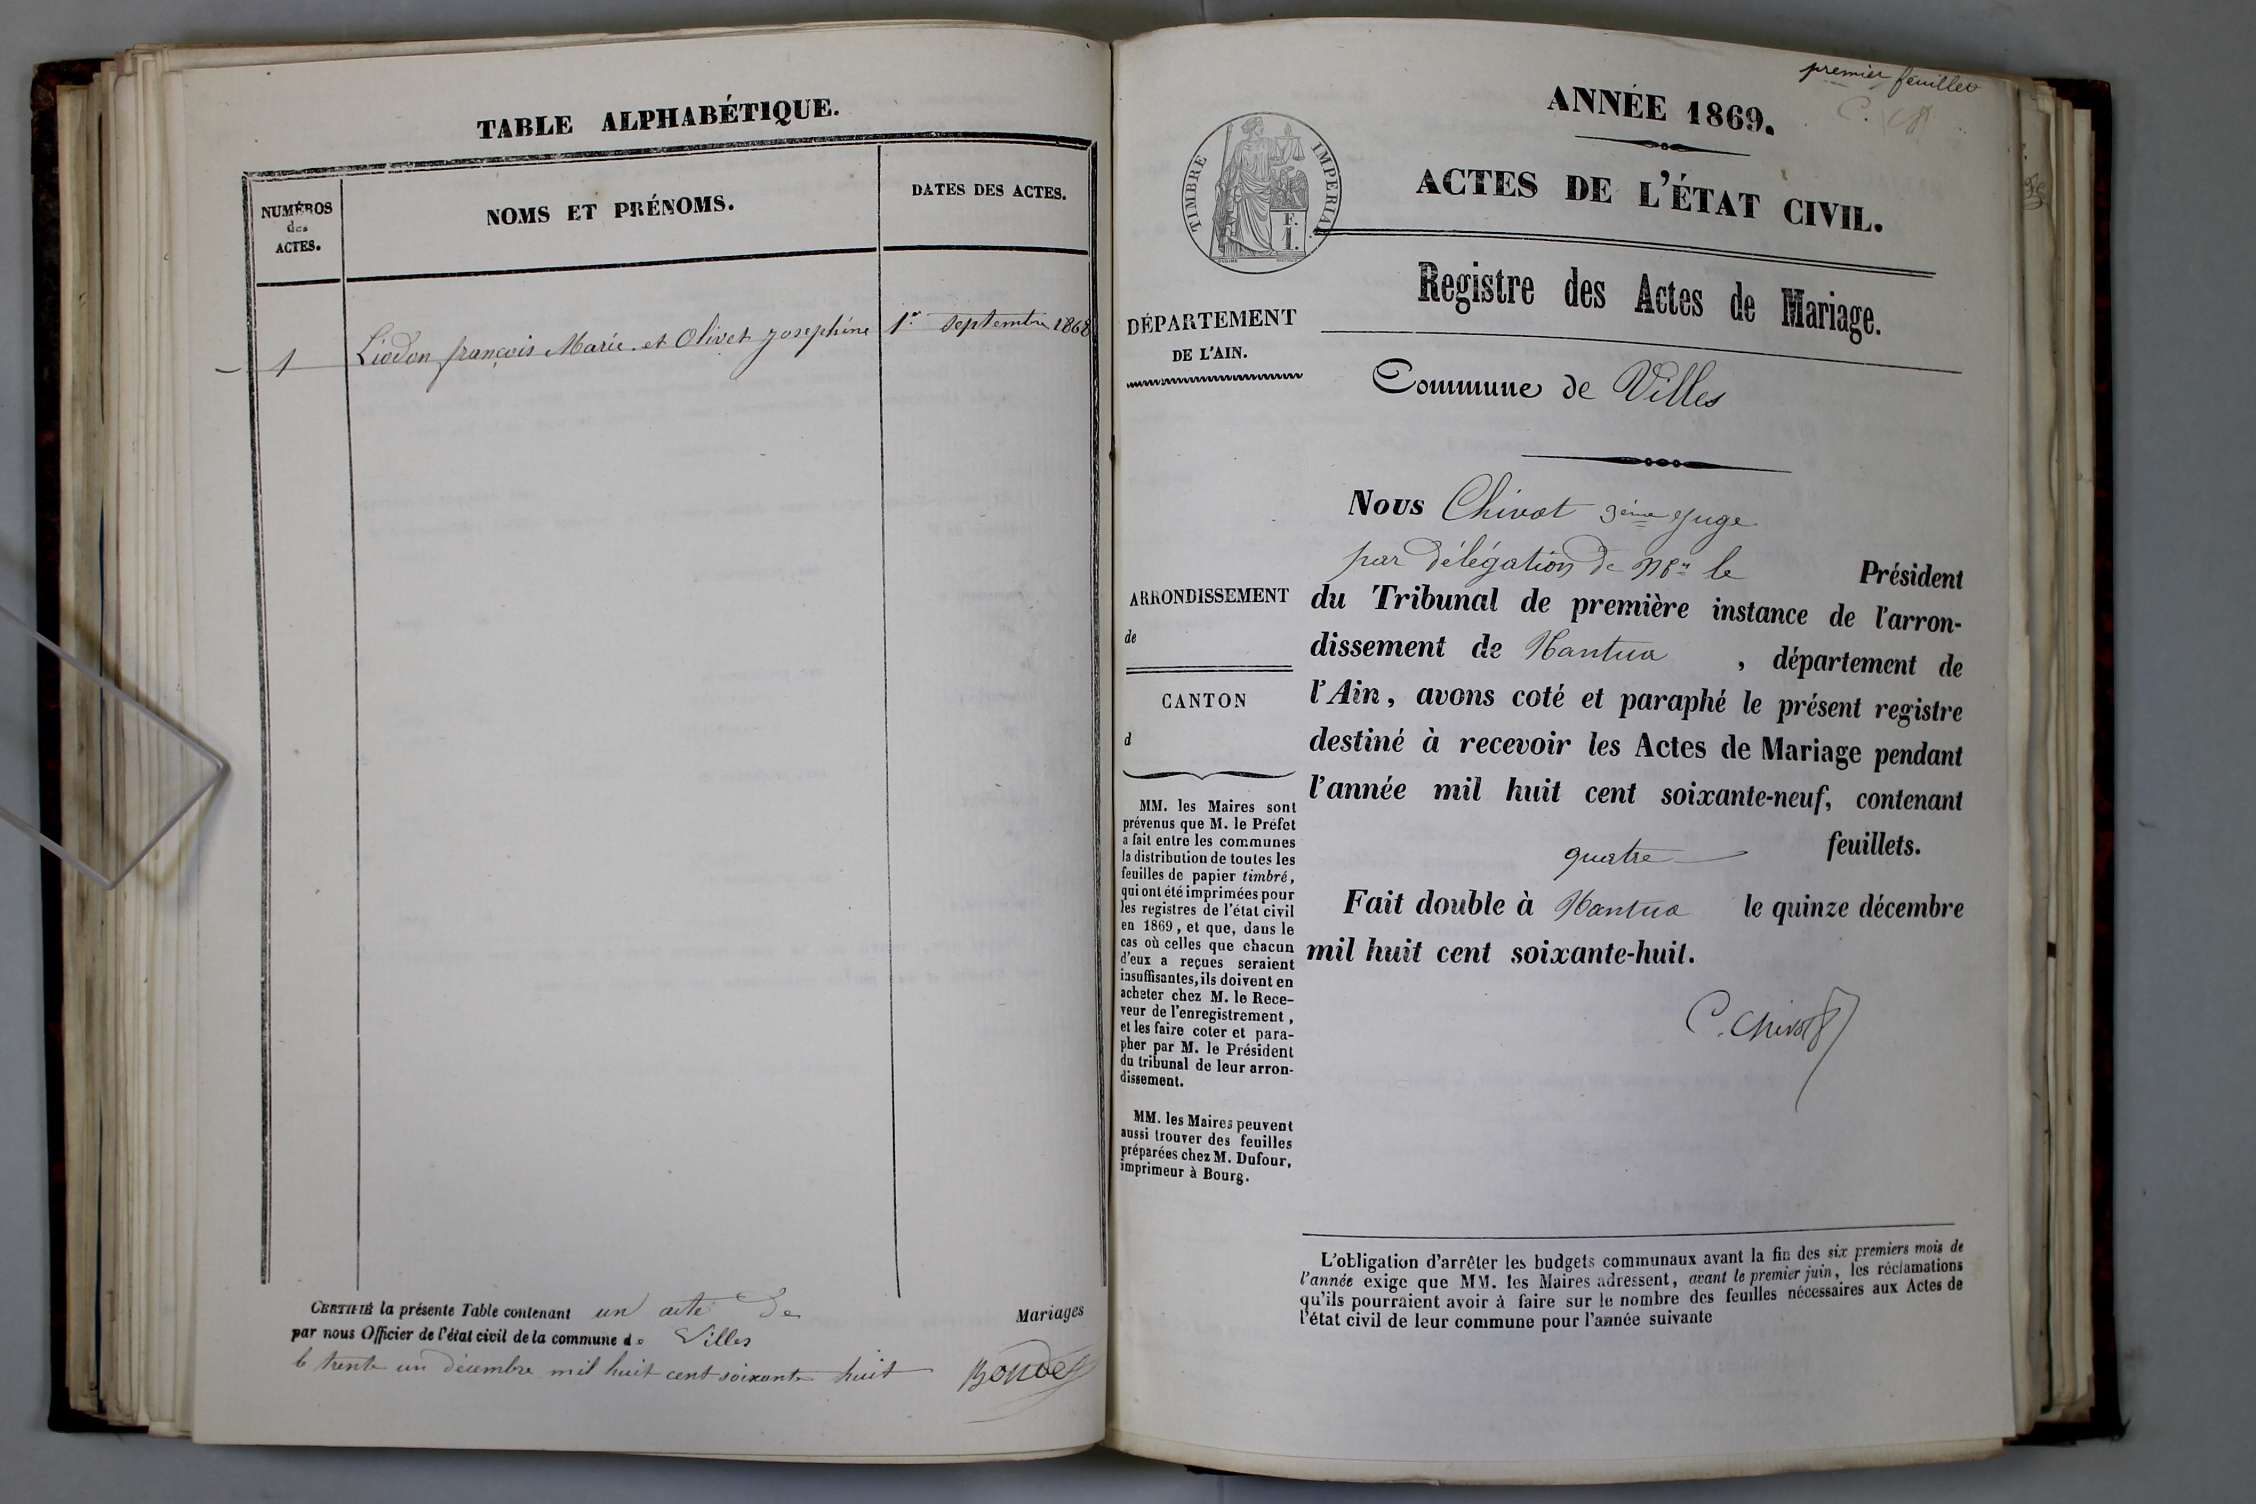 TABLE ALPHABÉTIQUE.
NUMÉROS
des
ACTES.
NOMS ET PRÉNOMS.
DATES DES ACTES.
1 Liodon françois Marie et Olivet Josephine 1er septembre 1868
CERTIFIÉ la présente Table contenant un acte de Mariages
par nous Officier de l'état civil de la commune de Villes
le trente un décembre mil huit cent soixante huit
premier feuillet
ANNÉE 1869.
TIMBRE IMPERIAL
F.
1.
ACTES DE L'ÉTAT CIVIL.
Registre des Actes de Mariage.
DÉPARTEMENT
DE L'AIN.
Commune de Villes
Nous Chivot 3ème Juge
par délégation de Mr le Président
du Tribunal de première instance de l'arron-
dissement de Nantua , département de
l'Ain, avons coté et paraphé le présent registre
destiné à recevoir les Actes de Mariage pendant
l'année mil huit cent soixante-neuf, contenant
quatre feuillets.
Fait double à Nantua le quinze décembre
mil huit cent soixante-huit.
C. Chivot
ARRONDISSEMENT
de
CANTON
d
MM. les Maires sont
prévenus que M. le Préfet
a fait entre les communes
la distribution de toutes les
feuilles de papier timbré,
qui ont été imprimées pour
les registres de l'état civil
en 1869, et que, dans le
cas où celles que chacun
d'eux a reçues seraient
insuffisantes, ils doivent en
acheter chez M. le Rece-
veur de l'enregistrement,
et les faire coter et para-
pher par M. le Président
du tribunal de leur arron-
dissement.
MM. les Maires peuvent
aussi trouver des feuilles
préparées chez M. Dufour,
imprimeur à Bourg.
L'obligation d'arrêter les budgets communaux avant la fin des six premiers mois de
l'année exige que MM. les Maires adressent, avant le premier juin, les réclamations
qu'ils pourraient avoir à faire sur le nombre des feuilles nécessaires aux Actes de
l'état civil de leur commune pour l'année suivante